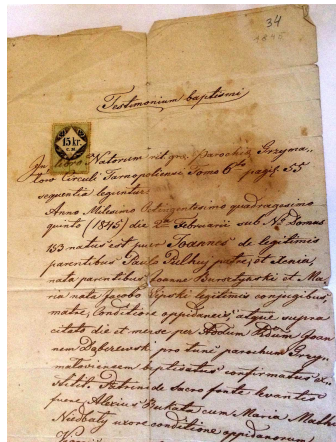 34
1845
Testimonium baptismi
15 kr.
C.M.
In libro Natorum rit. gra. parochia Grzyma-
low Circuli Tarnopoliensi Tomo 6to pagit. 55
sequentia leguntur.
Anno Milesimo Octingentesimo quadragesimo
quinto (1845) die Februarii sub No Domus
153 natus est puer Joannes de legitimis
parentibus Paulo patre, et Xenia,
nata parentibus Joanne Bursztynski et Ma-
ria nata Jacobo Lipski legitimis conjugibus
matre, Conditione oppidaneis, atque supra
citato die et mense per Joan-
nem Dąberewski pro tunc parochum Grzy-
maloviensem baptisatus confirmatus
de Sacro fonte levantes
fuere, Alexius Butata cum Maria
Niedbaly uxore conditione oppidanorum